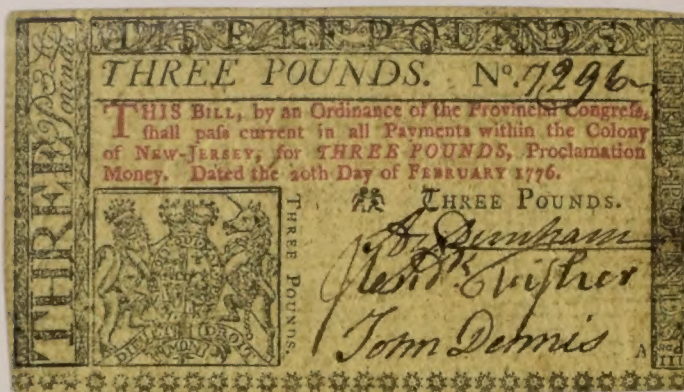 THREE POUNDS
THREE POUNDS. No. 7296
THIS BILL, by an Ordinance of the Provincial Congreſs,
ſhall paſs current in all Payments within the Colony
of NEW-JERSEY, for THREE POUNDS, Proclamation
Money. Dated the 20th Day of FEBRUARY 1776.
THREE POUNDS.
THREE POUNDS.
John Dennis
A
THREE
Pounds